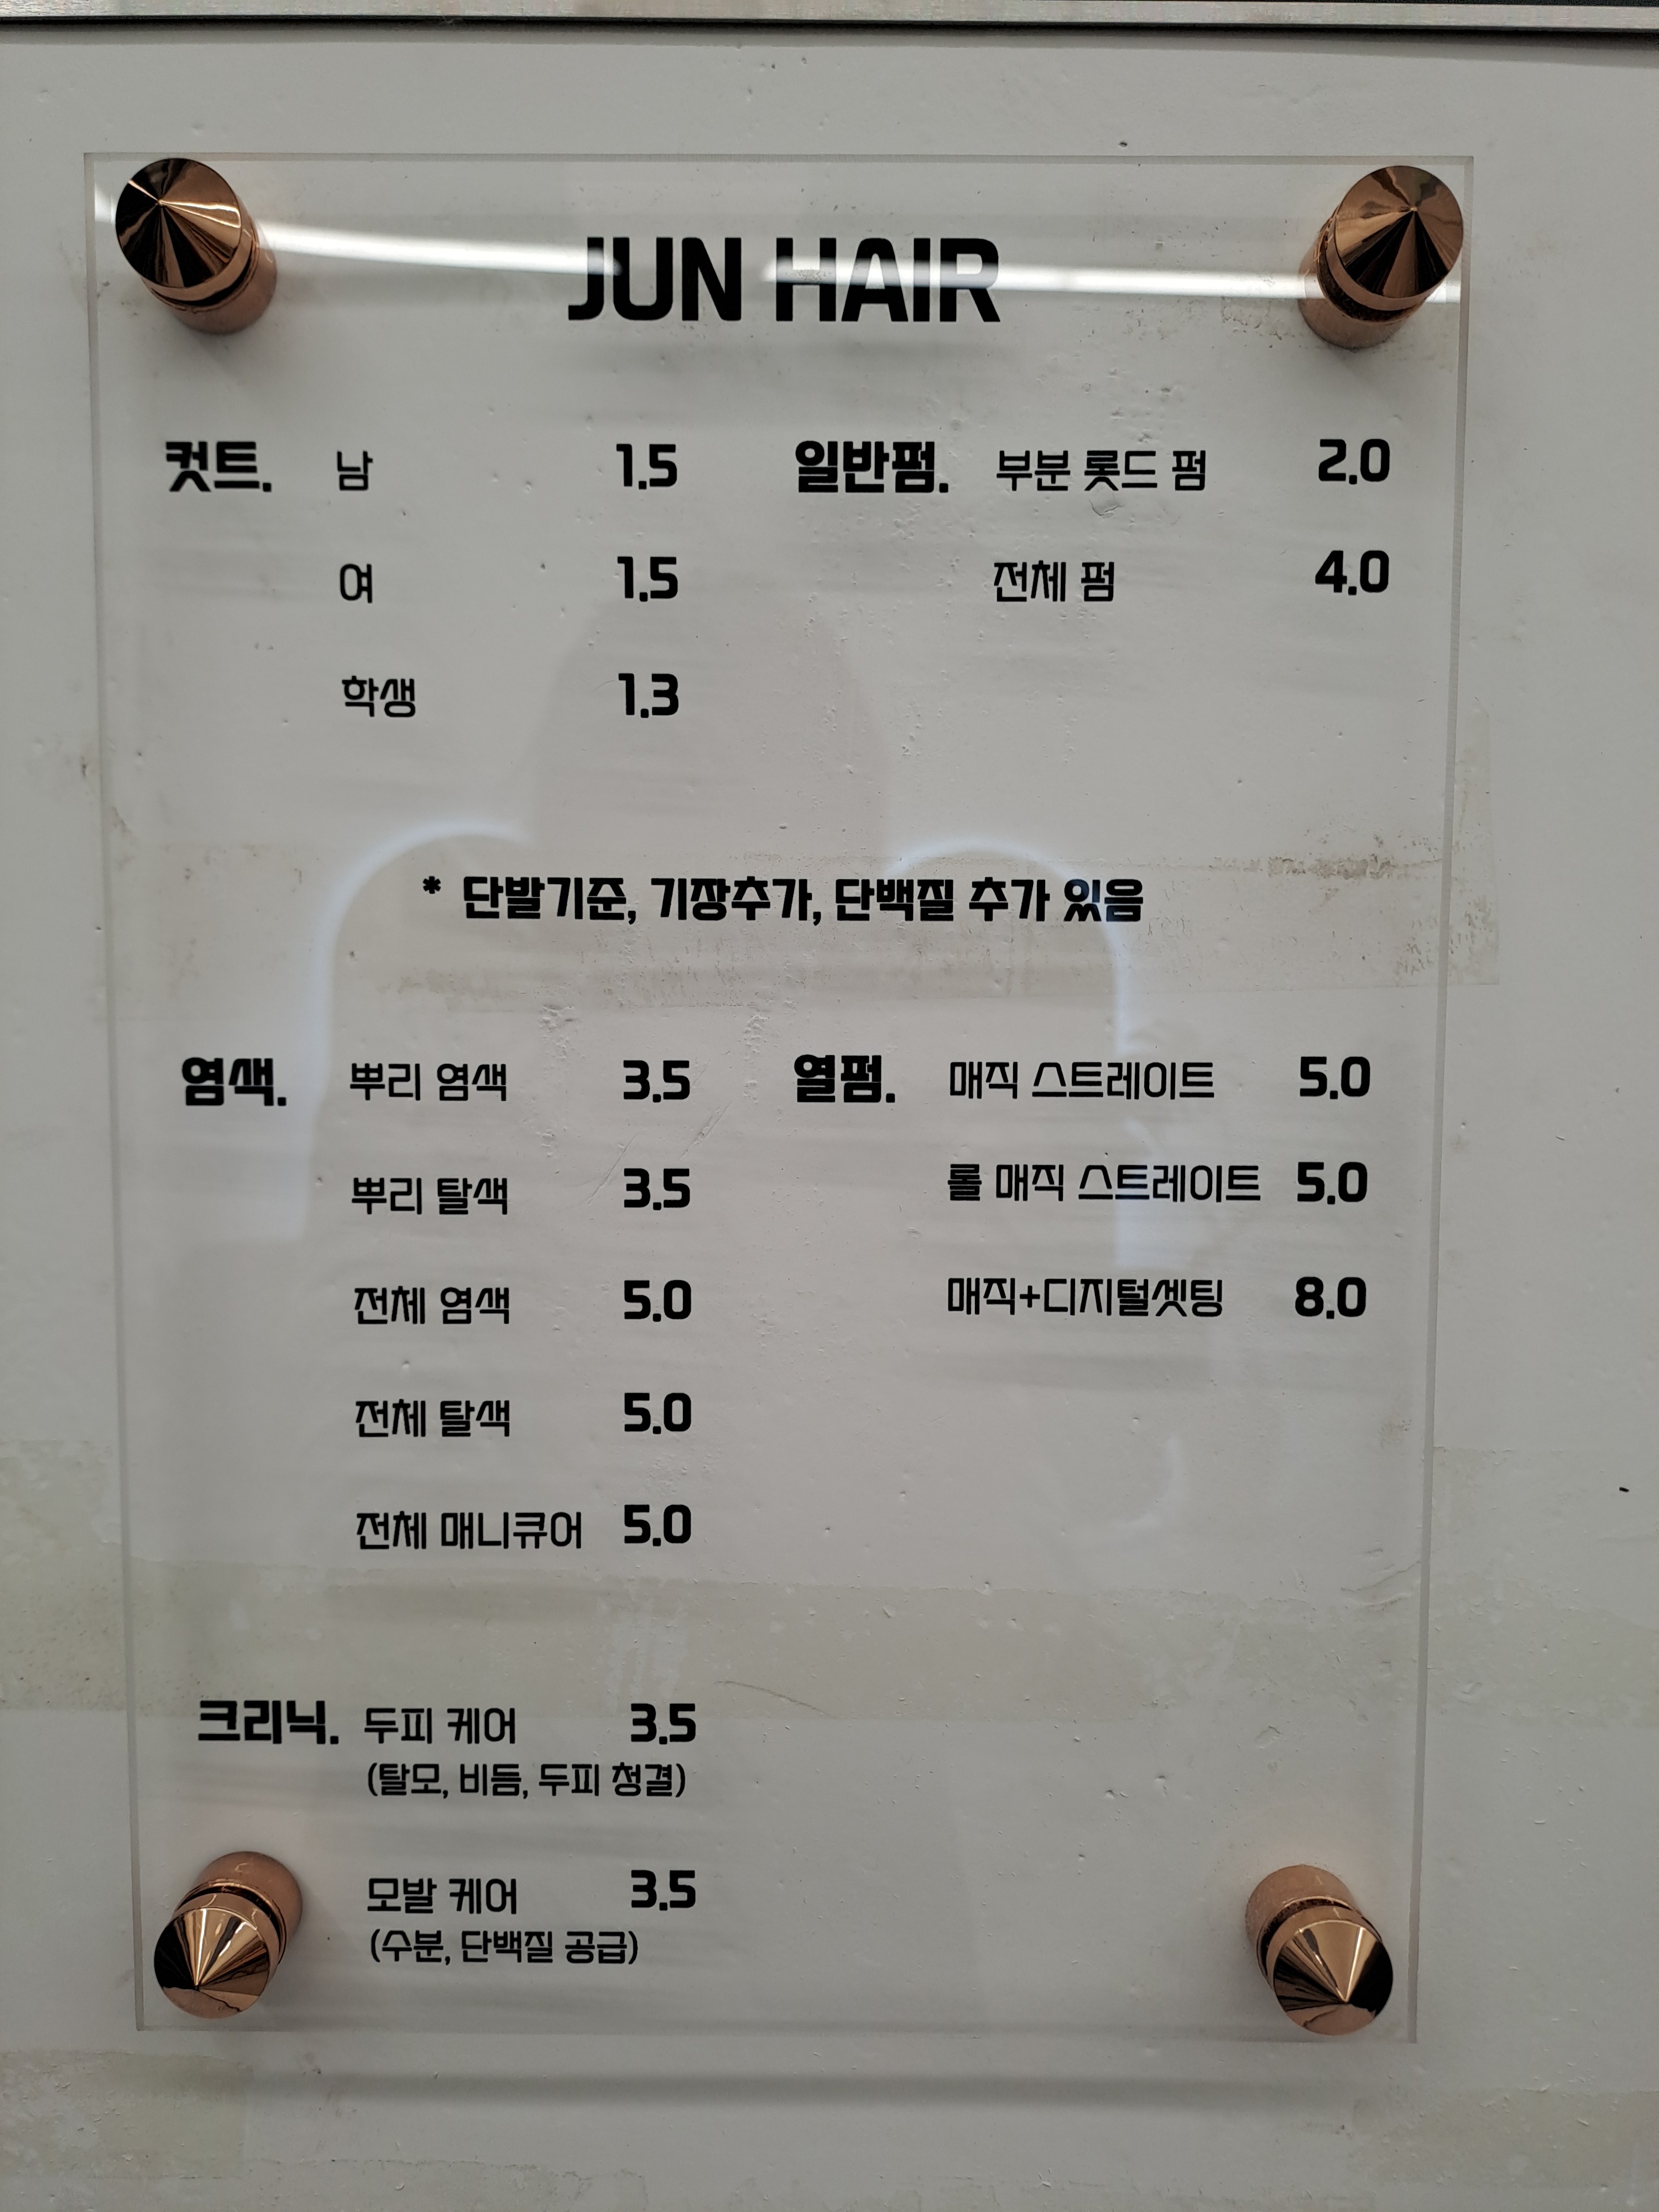 JUN HAIR
컷트. 남 1.5 일반펌. 부분 롯드 펌 2.0
여 1.5 전체 펌 4.0
학생 1.3
* 단발기준, 기장추가, 단백질 추가 있음
염색. 뿌리 염색 3.5 열펌. 매직 스트레이트 5.0
뿌리 탈색 3.5 롤 매직 스트레이트 5.0
전체 염색 5.0 매직+디지털셋팅 8.0
전체 탈색 5.0
전체 매니큐어 5.0
크리닉. 두피 케어 3.5
(탈모, 비듬, 두피 청결)
모발 케어 3.5
(수분, 단백질 공급)